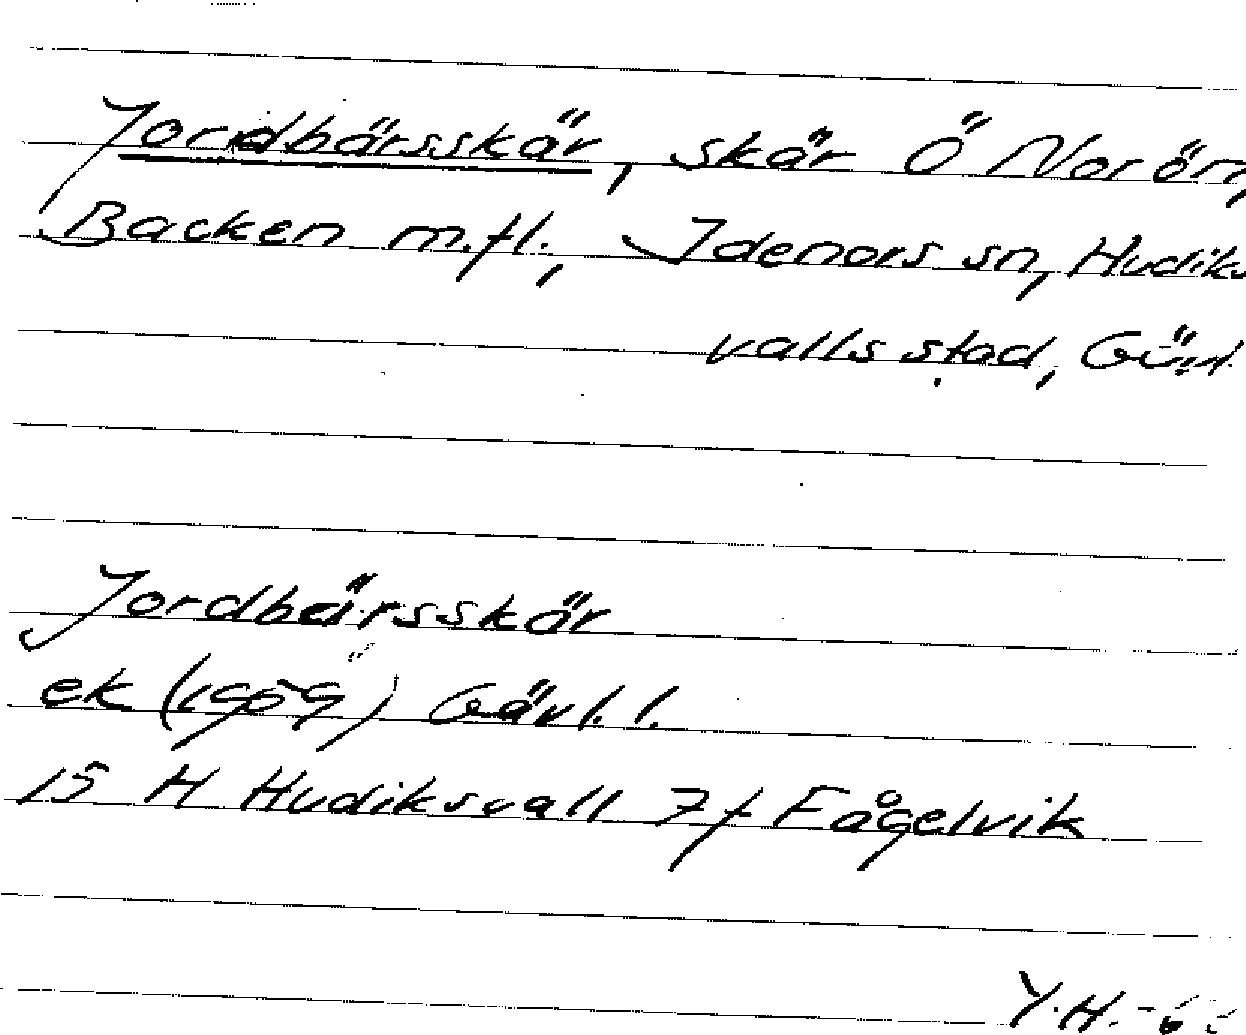 Jordbärsskär, skär Ö Norön,
Backen m.fl., Idenors sn, Hudiks
valls stad, Gävl.
Jordbärsskär
ek (1959) Gävl. l.
15 H Hudiksvall 7f Fågelvik
Y.H.